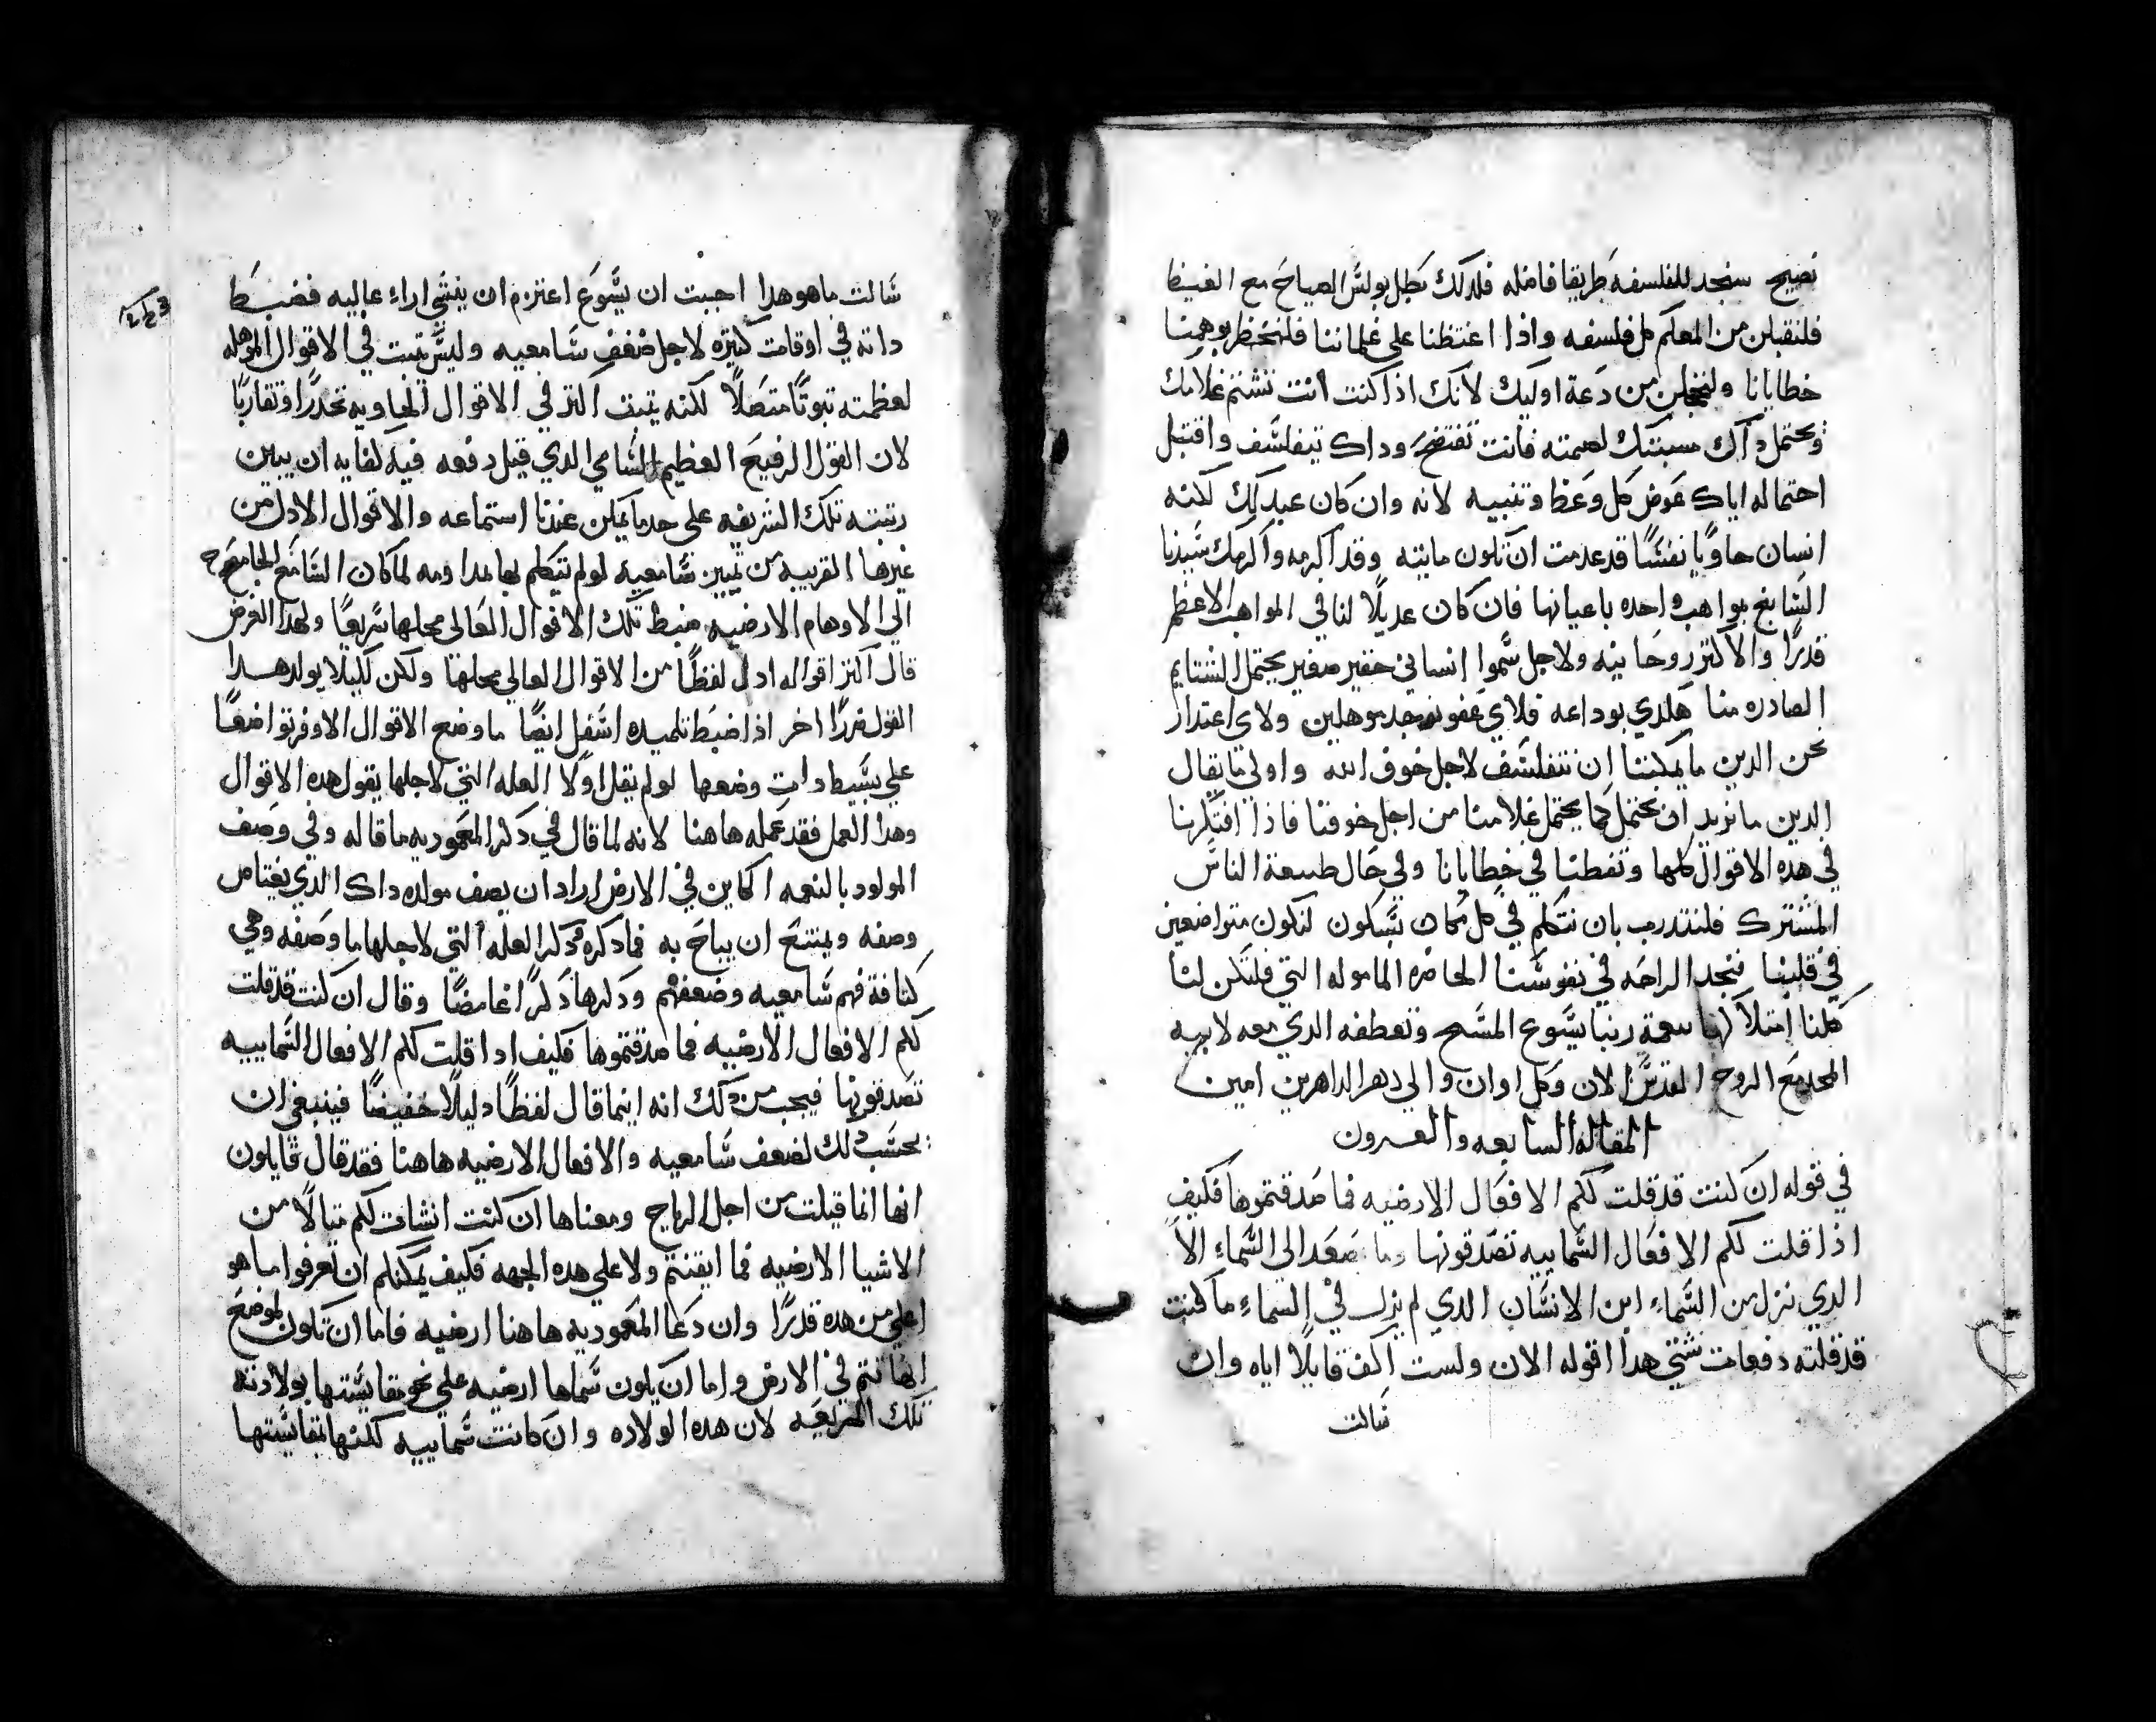 نصيح سنجد للفلسفه طريقا فاضله فلدلك تظل بولس الصياح مع الغيظ
فلنقبلن من المعلم كل فلسفه واذا اغتظنا علي غلماننا فلنخطر بوهمنا
خطايانا ولنخجلن من دعة اوليك لانك اذا كنت انت تشتم غلامك
ويحتمل داك مسبتك لصمته فانت تفتضح وداك تيفلسف واقتبل
احتماله اياك عوض كل وعظ وتنبيه لانه وان كان عبد لك لكنه
انسان حاويا نفسا قد عدمت ان تكون مايته وقد اكرمه واكرمك سيدنا
السابغ بمواهب واحده باعيانها فان كان عديلا لنا في المواهب الاعظم
قدرا والاكثر روحانيه ولاجل سموا انساني حقير صغير يحتمل الشتايم
الصادره منا هكدي بوداعه فلاي عفو نوجد موهلين ولاي اعتدار
نحن الدين ما يمكننا ان نتفلسف لاجل خوف الله واولي ما يقال
الدين ما نريد ان نحتمل كما يحتمل غلامنا من اجل خوفنا فاذا افتكرنا
في هده الاقوال كلها وتفطنا في خطايانا وفي حال طبيعة الناس
المشترك فلنتدرب بان نتكلم في كل مكان بسكون لنكون متواضعين
في قلبنا فنجد الراحه في نفوسنا الحاضره الماموله التي فلتكن لنا
كلنا امتلاكها بنعمة ربنا يسوع المسيح وتعطفه الدي معه لابيه
المجد مع الروح القدس الان وكل اوان والي دهر الداهرين امين
المقالة السابعه والعشرون
في قوله ان كنت قد قلت لكم الافعال الارضيه فما صدقتموها فكيف
اذا قلت لكم الافعال السماييه تصدقونها وما صعد الى السماء الا
الدي نزل من السماء ابن الانسان الدي لم يزل في السماء ما كنت
قد قلته دفعات شتي هدا اقوله الان ولست اكف قايلا اياه وان
سالت
سالت ما هو هدا اجبت ان يسوع اعتزم ان ينشي اراء عاليه فضبط
داته في اوقات كثيره لاجل ضعف سامعيه وليس تبت في الاقوال الموهله
لعظمته تبوتا متصلا لكنه يتبت اكثر في الاقوال الحاويه تحدرا وتقاربا
لان القول الرفيع العظيم السامي الدي قيل دفعه فيه كفايه ان يبين
رتبته تلك الشريفه على حد ما يمكن عندنا استماعه والاقوال الادل من
غيرها القريبه من تمييز سامعيه لو لم نتكلم بها مداومه لما كان السامع الجامع
الي الاوهام الارضيه ضبط تلك الاقوال العالى محلها سريعا ولهدا الغرض
قال اكثر اقواله ادل لفظا من الاقوال العالي محلها ولكن لكيلا يولد هدا
القول ضررا اخر اذا ضبط تلميده اسفل ايضا ما وضع الاقوال الاوفر تواضعا
علي بسيط دات وضعها لو لم يقل اولا العله التي لاجلها يقول هده الاقوال
وهدا العمل فقد عمله هاهنا لانه لما قال في دكر المعموديه ما قاله وفي وصف
المولود بالنعمه الكاين في الارض اراد ان يصف مولده داك الدي يعتاص
وصفه ويمتنع ان يباح به فما دكره ودكر العله التي لاجلها ما وصفه وهي
كثافة فهم سامعيه وضعفهم ودكرها دكرا غامضا وقال ان كنت قد قلت
لكم الافعال الارضيه فما صدقتموها فكيف ادا قلت لكم الافعال السماييه
تصدقونها فيجب من دلك انه اينما قال لفظا دليلا خفيضا فينبغي ان
يحسب دلك لضعف سامعيه والافعال الارضيه هاهنا فقد قال قايلون
انها انما قيلت من اجل الرياح ومعناها ان كنت انشات لكم متالا من
الاشيا الارضيه فما ايقنتم ولا علي هده الجهه فكيف يمكنكم ان تعرفوا ما هو
اعلي من هده قدرا وان دعا المعموديه هاهنا ارضيه فاما ان تكون لموضع
انها تتم في الارض واما ان يكون سماها ارضيه علي نحو مقايستها بولادته
تلك المريعه لان هده الولاده وان كانت سماييه لكنها بمقايستها